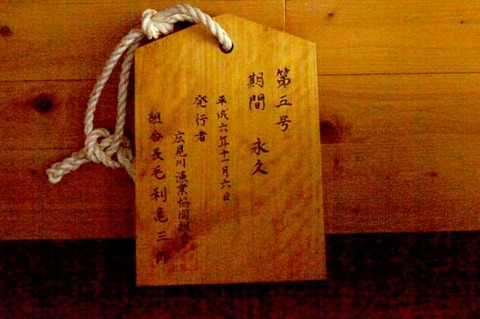 第五号
期間 永久
平成六年十一月六日
発行者
広見川漁業協同組合
組合長毛利亀三郎